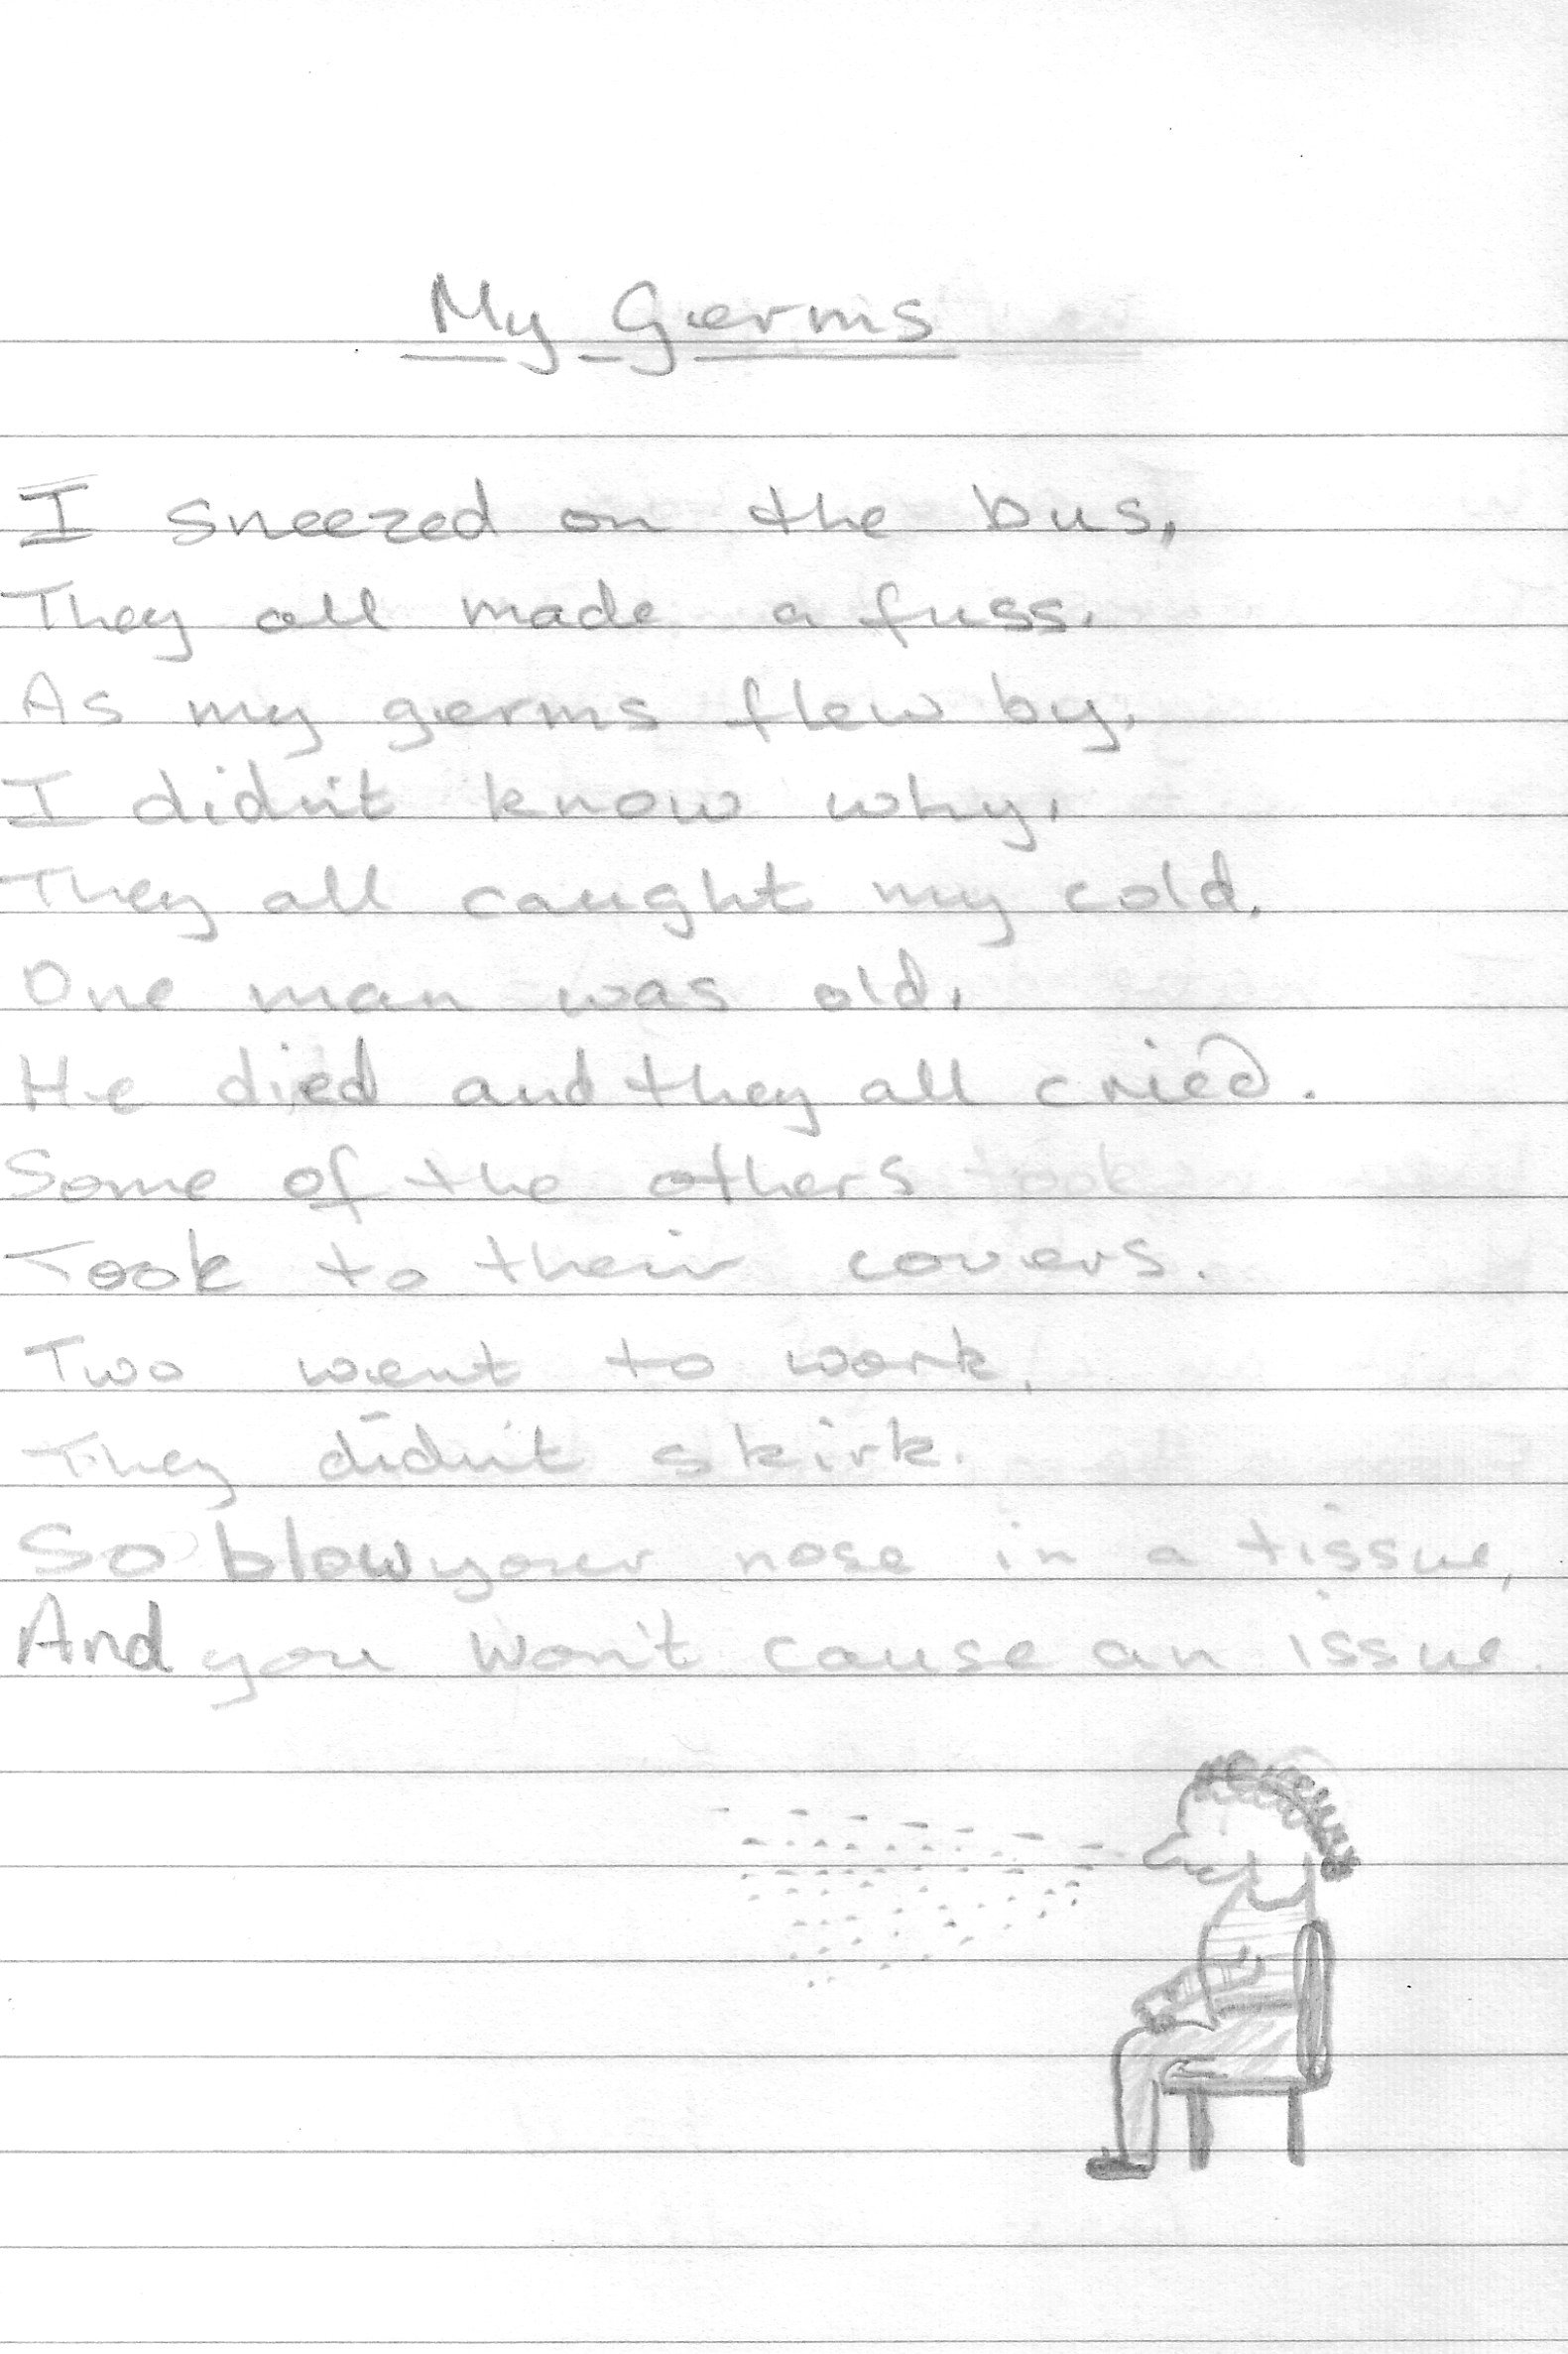 My Germs
I sneezed on the bus,
They all made a fuss.
As my germs flew by.
I didn't know why.
They all caught my cold.
One man was old.
He died and they all cried.
Some of the others took
Took to their covers.
Two went to work.
They didn't skirk.
So blow your nose in a tissue,
And you won't cause an issue.